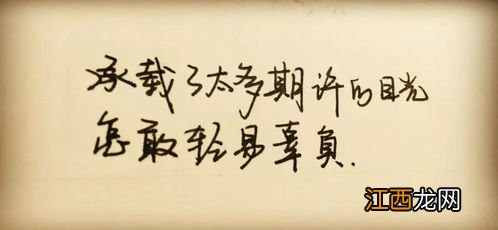 承载了太多期许的目光
怎敢轻易辜負.
江西龙网